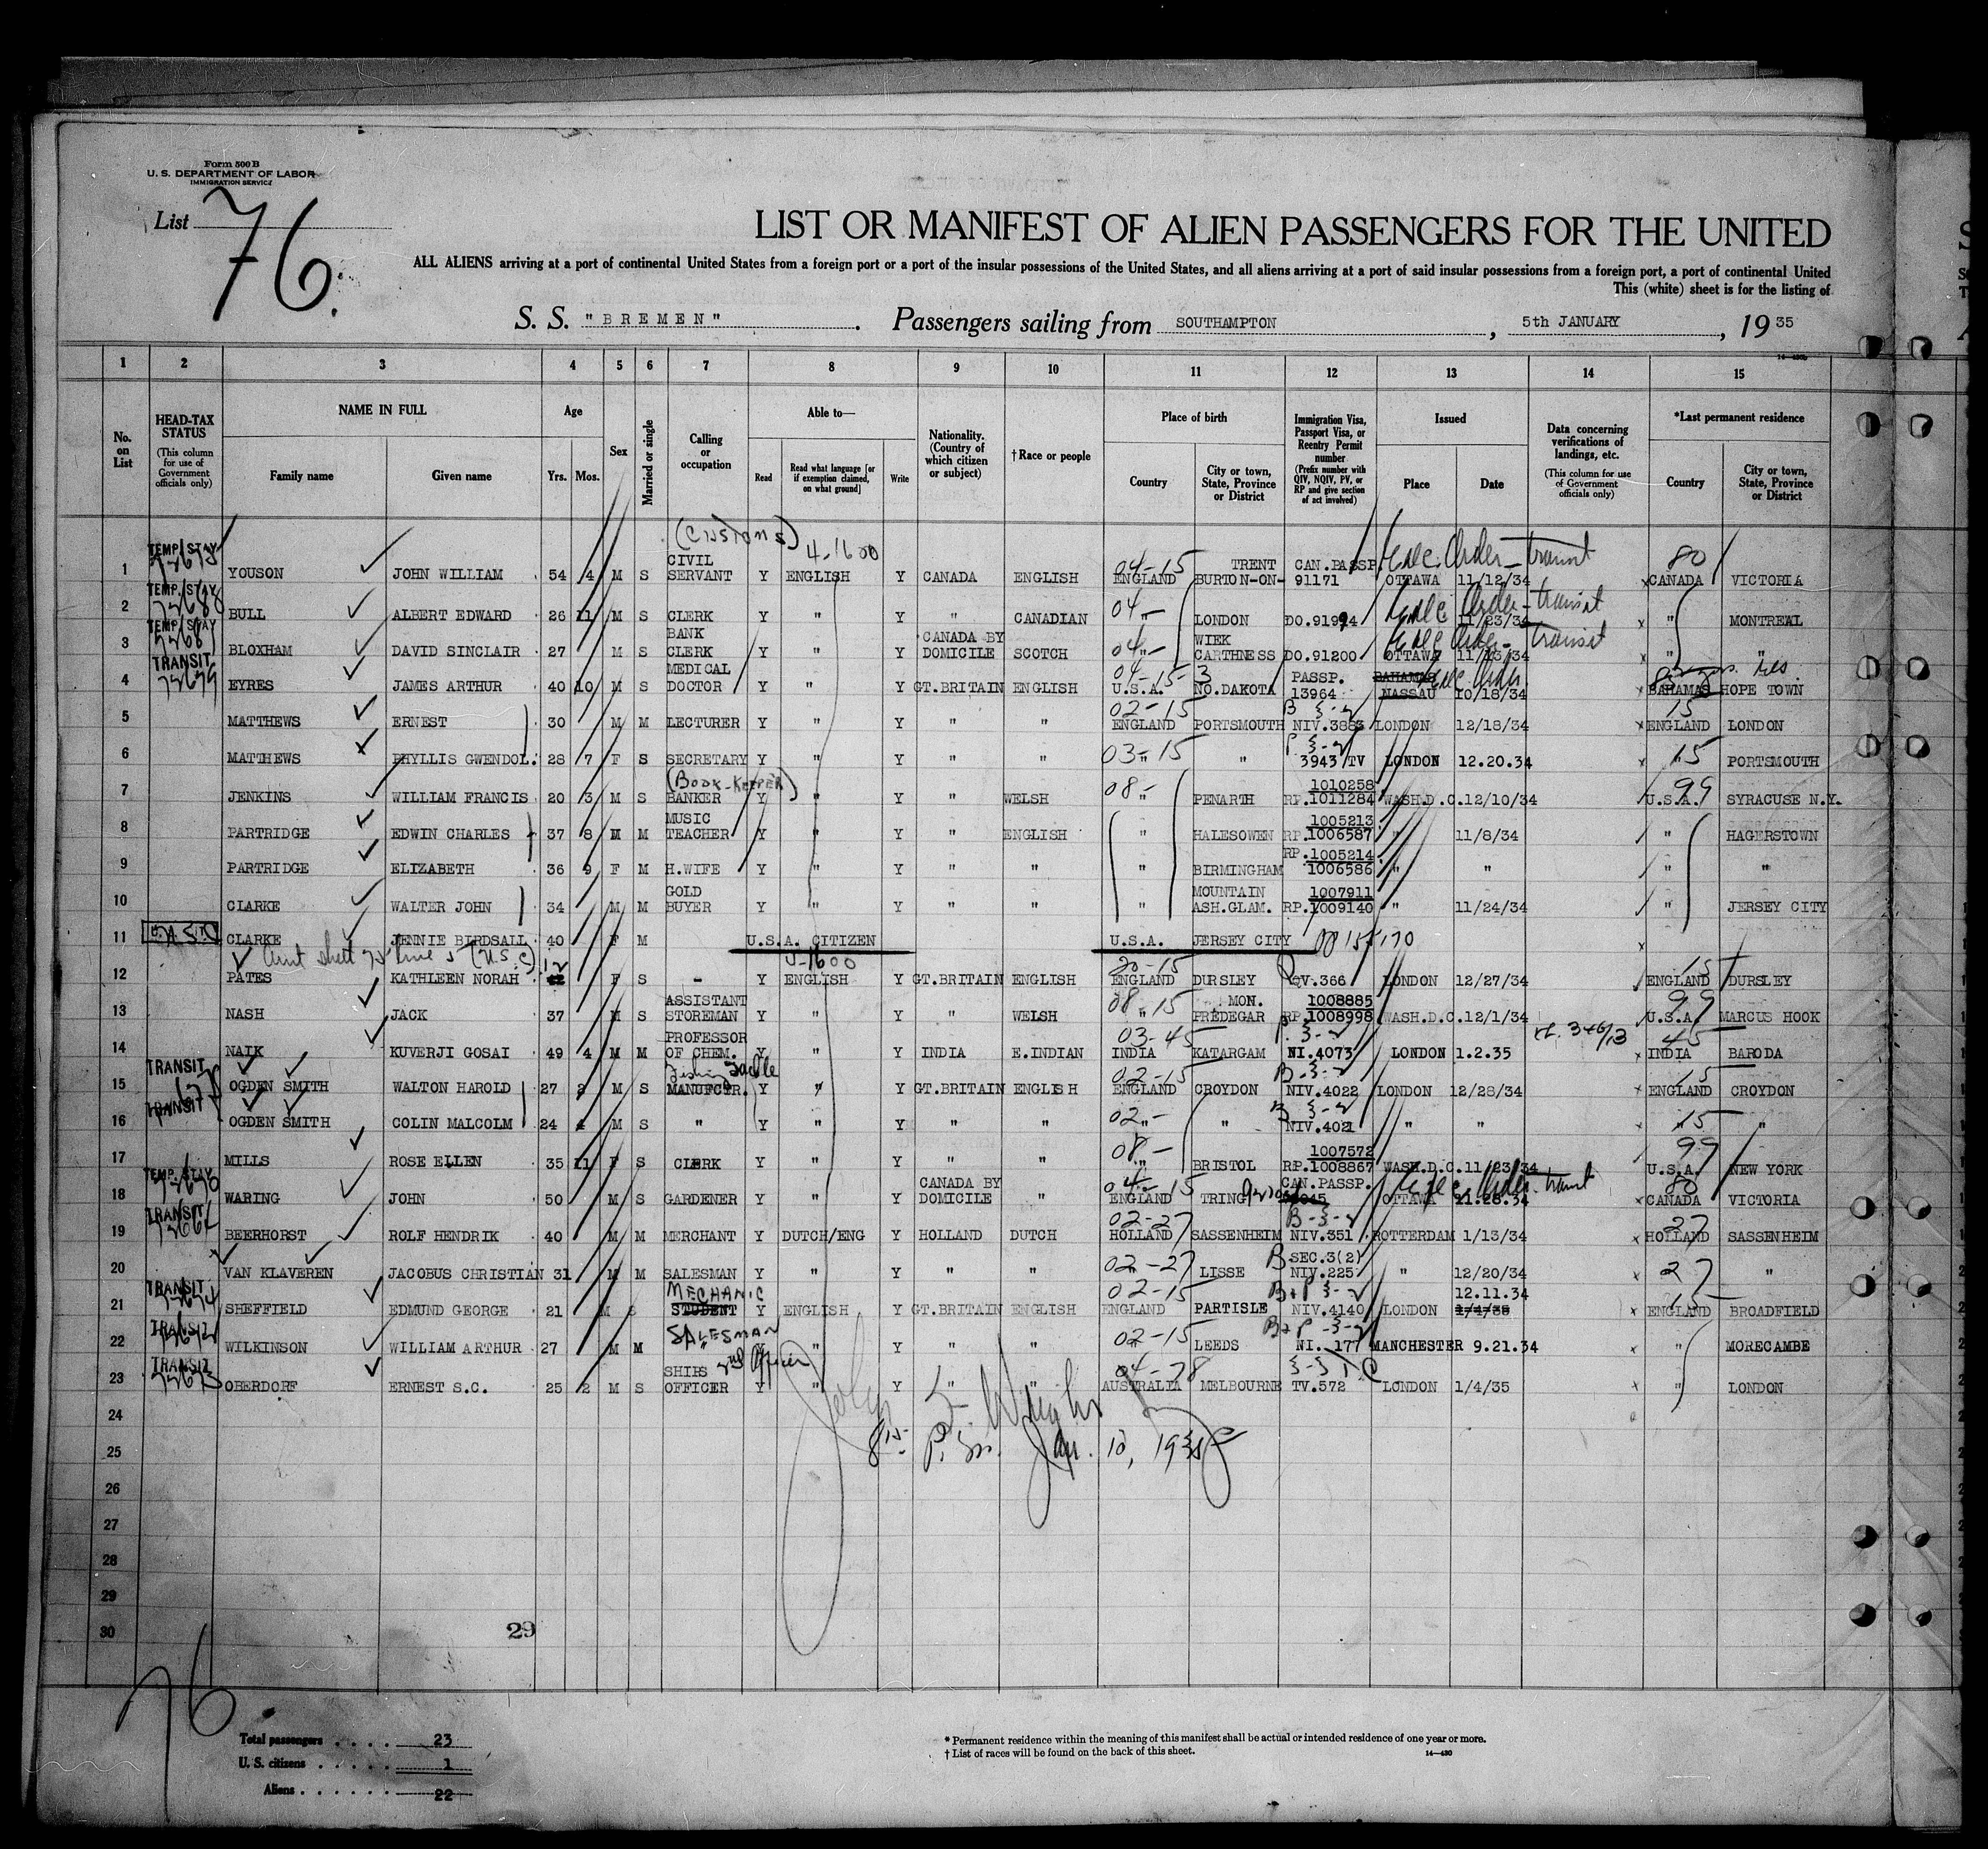 Form 500 B
U. S. DEPARTMENT OF LABOR
IMMIGRATION SERVICE
List 76.
LIST OR MANIFEST OF ALIEN PASSENGERS FOR THE UNITED
ALL ALIENS arriving at a port of continental United States from a foreign port or a port of the insular possessions of the United States, and all aliens arriving at a port of said insular possessions from a foreign port, a port of continental United
This (white) sheet is for the listing of
S. S. "BREMEN" . Passengers sailing from SOUTHAMPTON , 5th JANUARY , 19 35
1 2 3 4 5 6 7 8 9 10 11 12 13 14 15
No. on List
HEAD-TAX STATUS (This column for use of Government officials only)
NAME IN FULL Family name Given name
Age Yrs. Mos.
Sex
Married or single
Calling or occupation
Able to— Read Read what language [or if exemption claimed, on what ground] Write
Nationality. (Country of which citizen or subject)
† Race or people
Place of birth Country City or town, State, Province or District
Immigration Visa, Passport Visa, or Reentry Permit number (Prefix number with QIV, NQIV, PV, or RP and give section of act involved)
Issued Place Date
Data concerning verifications of landings, etc. (This column for use of Government officials only)
*Last permanent residence Country City or town, State, Province or District
(CUSTOMS) 4-1600
1 TEMP. STAY YOUSON JOHN WILLIAM 54 4 M S CIVIL SERVANT Y ENGLISH Y CANADA ENGLISH 04-15 ENGLAND BURTON-ON- TRENT CAN.PASSP. 91171 OTTAWA 11/12/34 Exec. Order - transit 80 x CANADA VICTORIA
2 TEMP. STAY BULL ALBERT EDWARD 26 11 M S CLERK Y " Y " CANADIAN 04- " LONDON DO.91994 " 11/23/34 Exec Order - transit x " MONTREAL
3 TEMP. STAY BLOXHAM DAVID SINCLAIR 27 M S BANK CLERK Y " Y CANADA BY DOMICILE SCOTCH 04- " WIEK CARTHNESS DO.91200 OTTAWA Exec Order - transit x " "
4 TRANSIT EYRES JAMES ARTHUR 40 10 M S MEDICAL DOCTOR Y " Y GT.BRITAIN ENGLISH 04-15-3 U.S.A. NO.DAKOTA PASSP. 13964 BAHAMAS NASSAU 10/18/34 Exec Order res. x BAHAMAS HOPE TOWN
5 MATTHEWS ERNEST 30 M M LECTURER Y " Y " " 02-15 ENGLAND PORTSMOUTH B 3-2 NIV.3883 LONDON 12/18/34 15 x ENGLAND LONDON
6 MATTHEWS PHYLLIS GWENDOL. 28 7 F S SECRETARY Y " Y " " 03-15 " " P 3-2 3943 TV LONDON 12.20.34 x 15 " PORTSMOUTH
7 JENKINS WILLIAM FRANCIS 20 3 M S (BOOK-KEEPER) BANKER Y " Y " WELSH 08- " PENARTH 1010258 RP.1011284 WASH.D.C. 12/10/34 99 U.S.A. SYRACUSE N.Y.
8 PARTRIDGE EDWIN CHARLES 37 8 M M MUSIC TEACHER Y " Y " ENGLISH " HALESOWEN 1005213 RP.1006587 " 11/8/34 " HAGERSTOWN
9 PARTRIDGE ELIZABETH 36 9 F M H.WIFE Y " Y " " " BIRMINGHAM RP.1005214 1006586 " " " "
10 CLARKE WALTER JOHN 34 M M GOLD BUYER Y " Y " " " MOUNTAIN ASH.GLAM. 1007911 RP.1009140 " 11/24/34 " JERSEY CITY
11 U.S.C CLARKE JENNIE BIRDSALL 40 F M U.S.A. CITIZEN U.S.A. JERSEY CITY x
Aunt sheet 75 line 5 (U.S.C)
12 PATES KATHLEEN NORAH 12 F S - Y ENGLISH Y GT.BRITAIN ENGLISH 20-15 ENGLAND DURSLEY QV.366 LONDON 12/27/34 15 ENGLAND DURSLEY
13 NASH JACK 37 M S ASSISTANT STOREMAN Y " Y " WELSH 08-15 " MON. TREDEGAR 1008885 RP.1008998 WASH.D.C. 12/1/34 99 U.S.A. MARCUS HOOK
14 NAIK KUVERJI GOSAI 49 4 M M PROFESSOR OF CHEM. Y " Y INDIA E.INDIAN 03-45 INDIA KATARGAM P. 3-2 NI.4073 LONDON 1.2.35 45 x INDIA BARODA
15 TRANSIT OGDEN SMITH WALTON HAROLD 27 2 M S Fishing Tackle MANUFCTR. Y " Y GT.BRITAIN ENGLISH 02-15 ENGLAND CROYDON B-3-2 NIV.4022 LONDON 12/28/34 15 x ENGLAND CROYDON
16 TRANSIT OGDEN SMITH COLIN MALCOLM 24 4 M S " Y " Y " " 02- " " B 3-2 NIV.4021 " " x 15 " "
17 MILLS ROSE ELLEN 35 11 F S CLERK Y " Y " " 08- " BRISTOL 1007572 RP.1008867 WASH.D.C. 11/23/34 99 U.S.A. NEW YORK
18 TEMP. STAY WARING JOHN 50 M S GARDENER Y " Y CANADA BY DOMICILE " 04-15 ENGLAND TRING CAN.PASSP. OTTAWA 11.28.34 Exec Order - transit 80 x CANADA VICTORIA
19 TRANSIT BEERHORST ROLF HENDRIK 40 M M MERCHANT Y DUTCH/ENG Y HOLLAND DUTCH 02-27 HOLLAND SASSENHEIM B-3-2 NIV.351 ROTTERDAM 1/13/34 27 x HOLLAND SASSENHEIM
20 VAN KLAVEREN JACOBUS CHRISTIAN 31 M M SALESMAN Y " Y " " 02-27 " LISSE B SEC.3(2) NIV.225 " 12/20/34 x 27 " "
21 TRANSIT SHEFFIELD EDMUND GEORGE 21 M S MECHANIC STUDENT Y ENGLISH Y GT.BRITAIN ENGLISH 02-15 ENGLAND PARTISLE B+P 3-2 NIV.4140 LONDON 12.11.34 1/4/35 15 x ENGLAND BROADFIELD
22 TRANSIT WILKINSON WILLIAM ARTHUR 27 M M SALESMAN " Y " Y " " 02-15 " LEEDS B+P-3-2 NI. 177 MANCHESTER 9.21.34 x " MORECAMBE
23 TRANSIT OBERDORF ERNEST S.C. 25 2 M S SHIPS 2nd Officer OFFICER Y " Y " " 04-78 AUSTRALIA MELBOURNE 3-3 TC TV.572 LONDON 1/4/35 x " LONDON
24
25 8 15 P.M. Jan. 10, 1935
26
27
28
29
30 29
76
Total passengers . . . . 23
U. S. citizens . . . . . 1
Aliens . . . . . . 22
* Permanent residence within the meaning of this manifest shall be actual or intended residence of one year or more.
† List of races will be found on the back of this sheet. 14—430